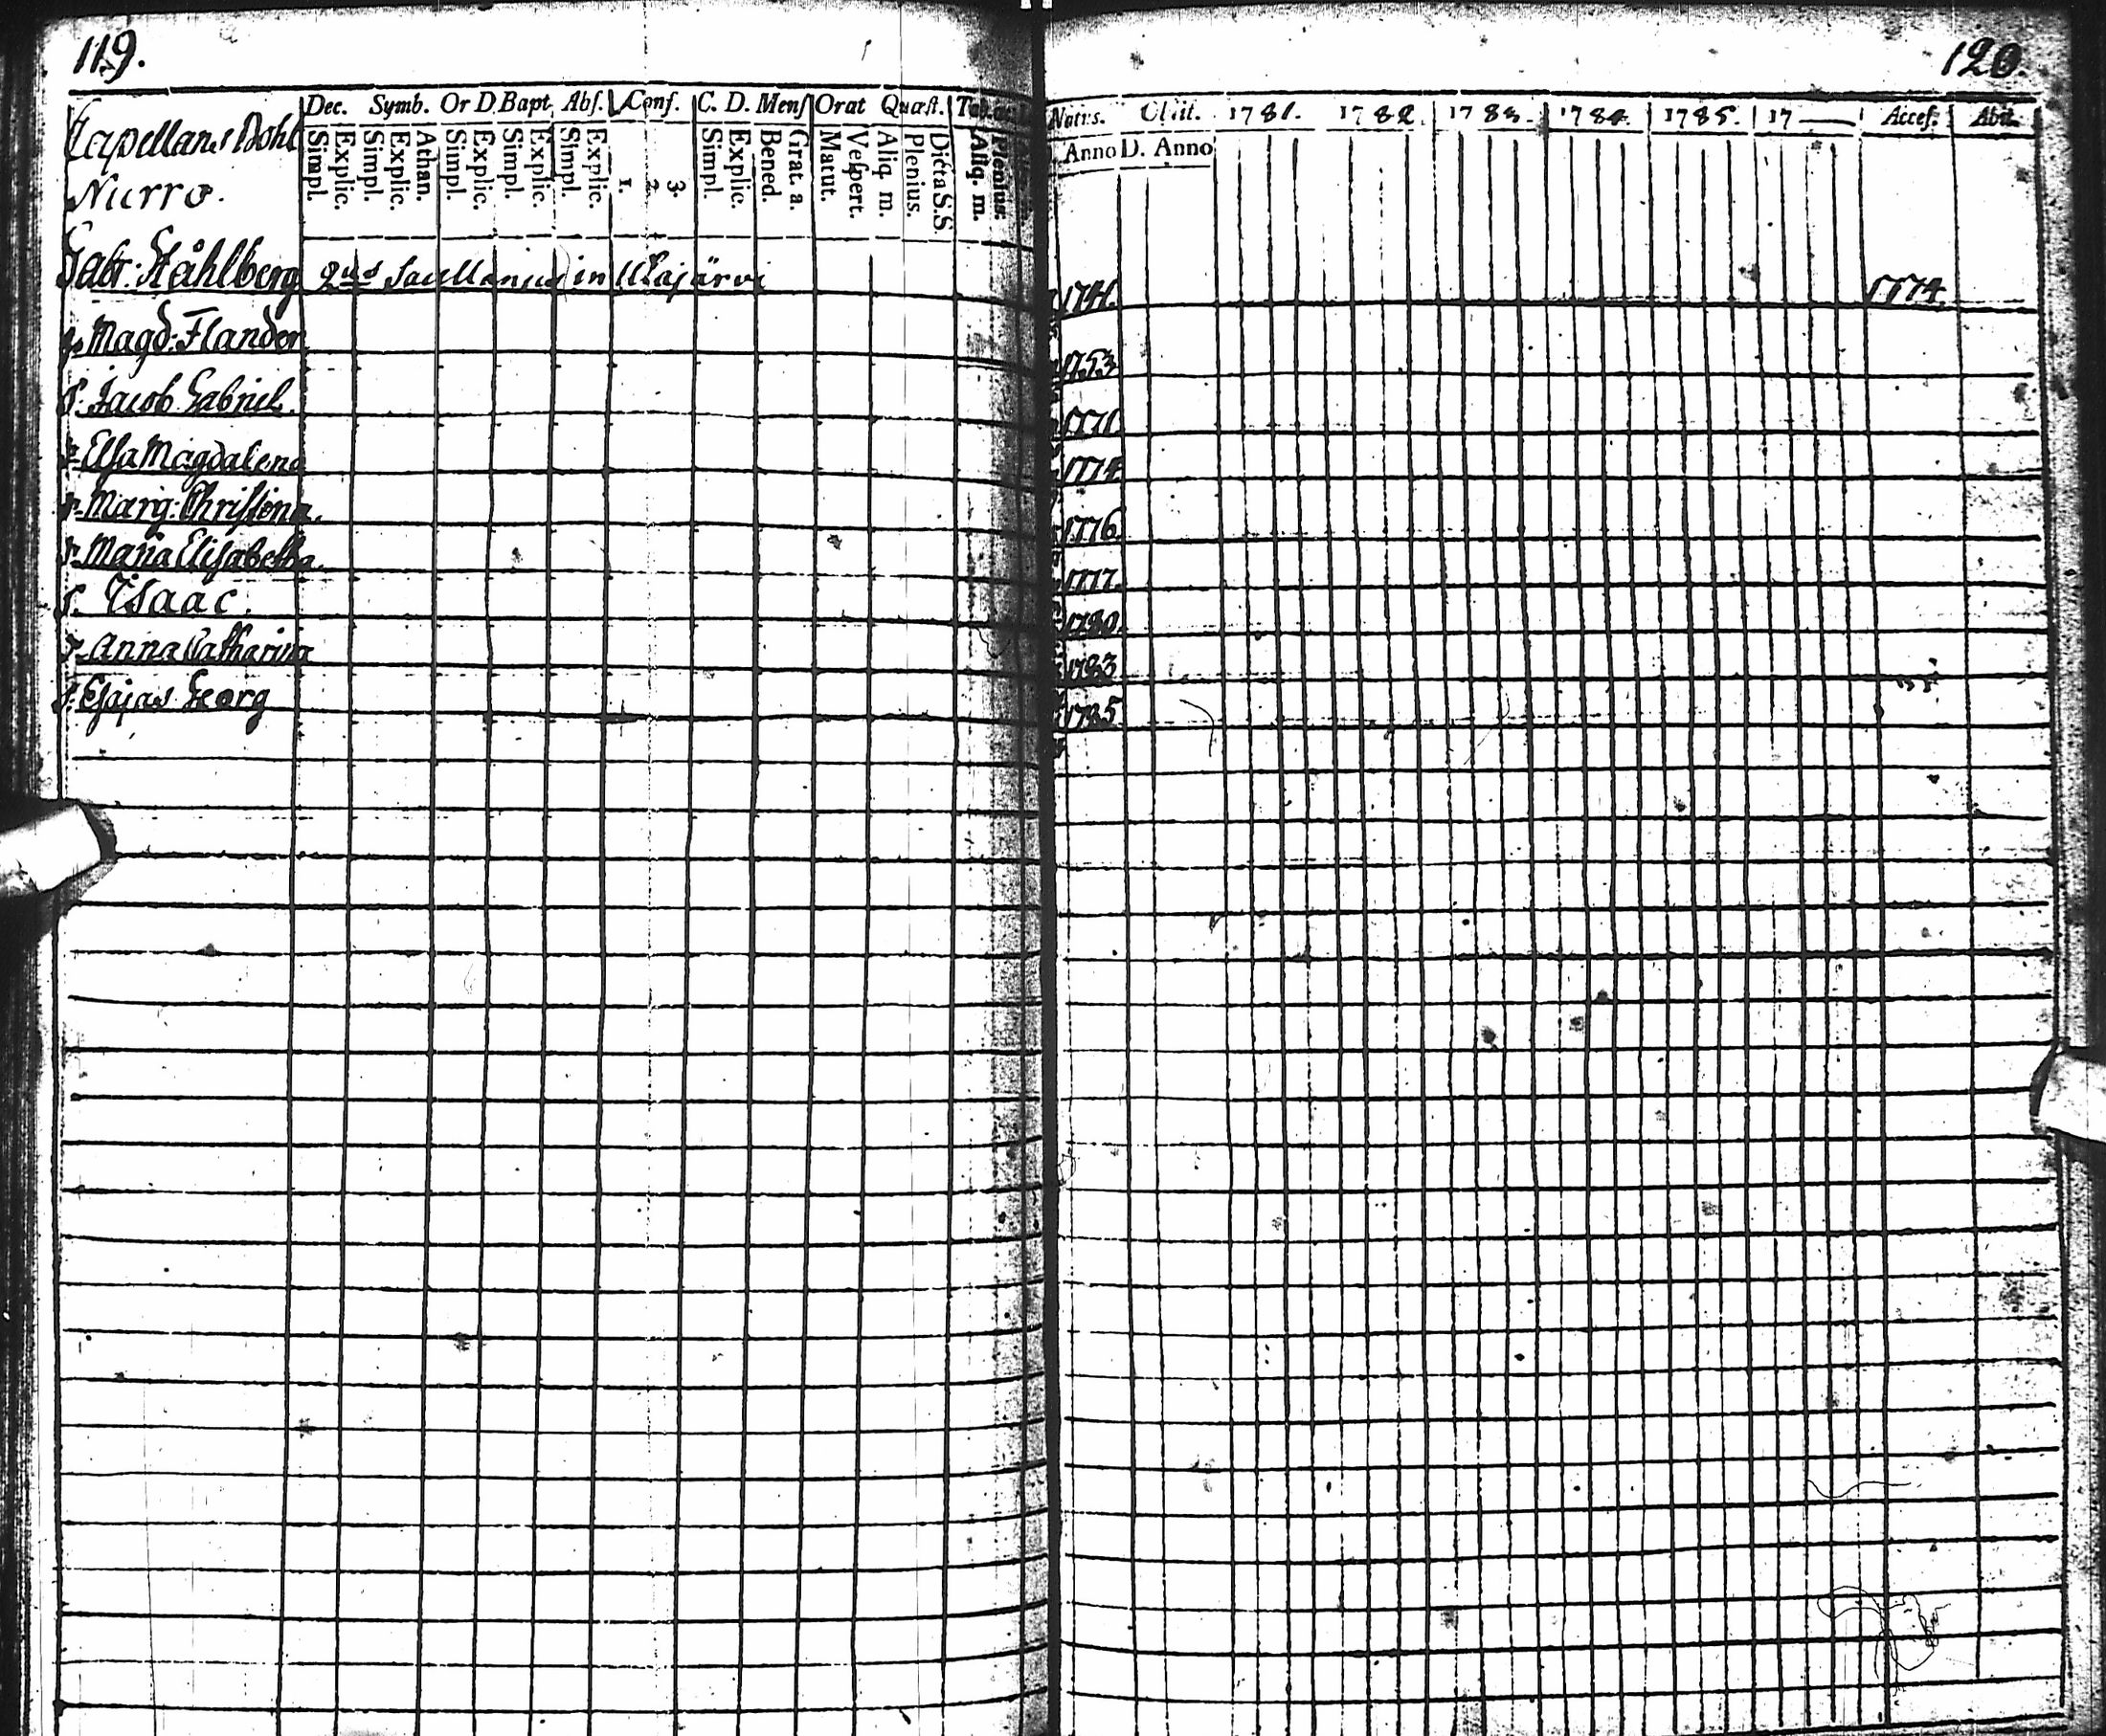 119.
Dec. Symb. Or D. Bapt. Abs. Conf. C. D. Mens Orat Quæst. Tab.
Simpl. Explic. Simpl. Explic. Athan. Simpl. Explic. Simpl. Explic. Simpl. Explic. 1. 2. 3. Simpl. Explic. Bened. Grat. a. Matut. Vespert. Aliq. m. Plenius. Dicta S.S Aliq. m. Plenius.
Capellans Bohl
Nurro.
Gabr: Ståhlberg 2us Sacellanus in Ulajärvi
Magd: Flander
S. Jacob Gabriel.
Elsa Magdalena
Marg: Christina.
Maria Elisabetha.
S. Isaac.
Anna Catharina
S. Esajas Georg
120.
Natus. Obiit. 1781. 1782. 1783. 1784. 1785. 17 Acces. Abit.
Anno D. Anno
1741. 1774
1753
1771
1774
1776
1777.
1780.
1783
1785